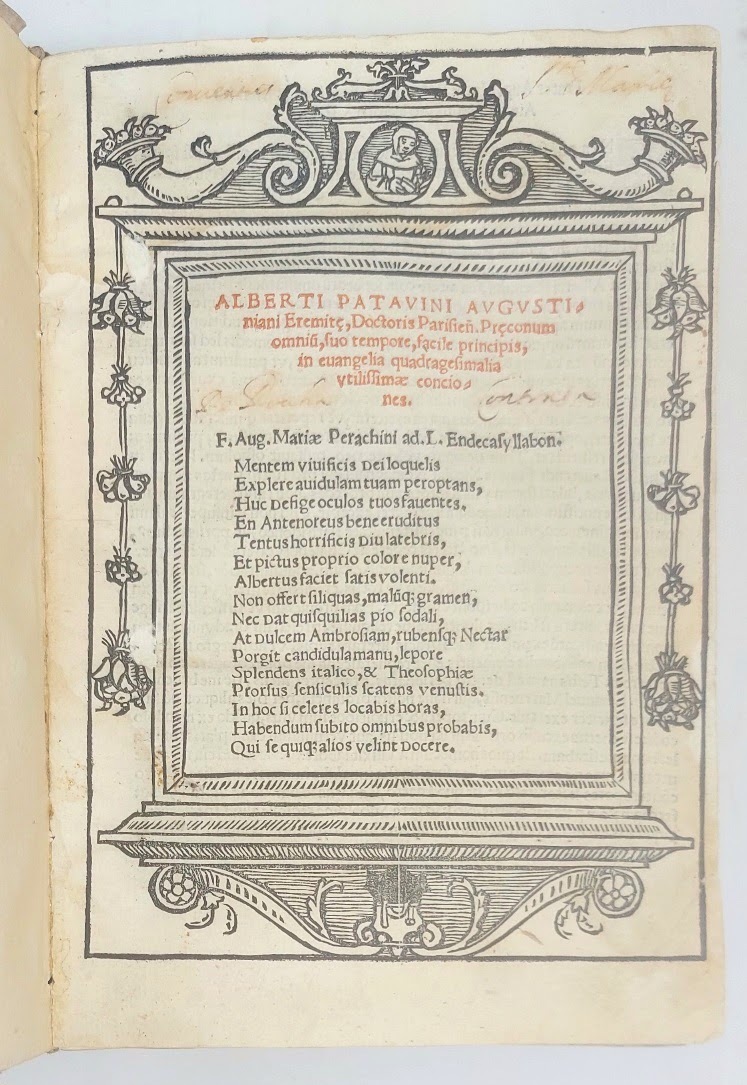 Conventus S.te Marie
ALBERTI PATAVINI AVGVSTI⸗
niani Eremitę, Doctoris Parisieñ. Pręconum
omniū, suo tempore, facile principis,
in euangelia quadragesimalia
vtilissimæ concio⸗
nes.
F. Aug. Mariæ Perachini ad. L. Endecasyllabon.
Mentem viuificis Dei loquelis
Explere auidulam tuam peroptans,
Huc Defige oculos tuos fauentes.
En Antenoreus bene eruditus
Tentus horrificis Diu latebris,
Et pictus proprio colore nuper,
Albertus faciet satis volenti.
Non offert siliquas, malūq; gramen,
Nec Dat quisquilias pio sodali,
At Dulcem Ambrosiam, rubensq; Nectar
Porgit candidula manu, lepore
Splendens italico, & Theosophiæ
Prorsus sensiculis scatens venustis.
In hoc si celeres locabis horas,
Habendum subito omnibus probabis,
Qui se quiq; alios velint Docere.